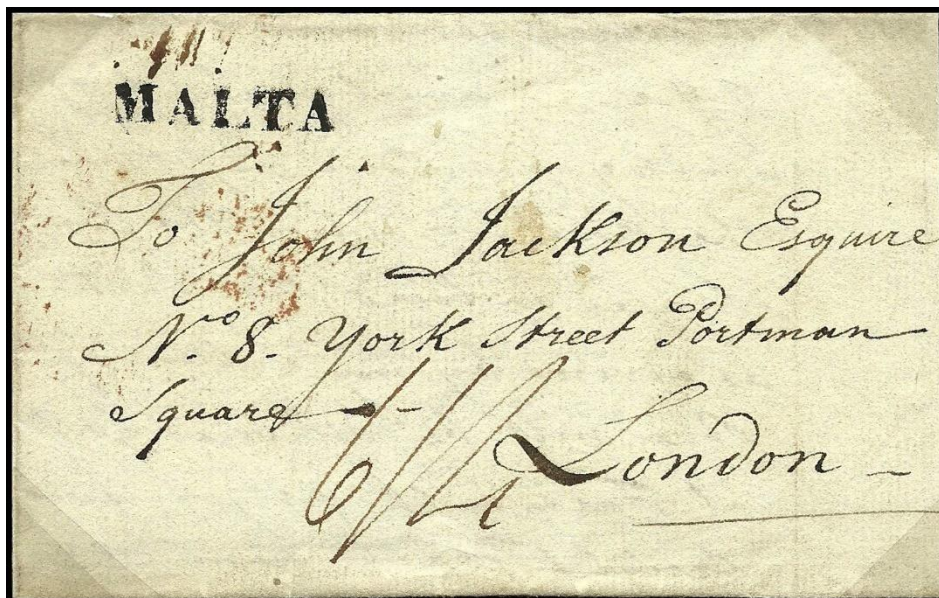 MALTA
To John Jackson Esquire
No. 8. York Street Portman
Square
London